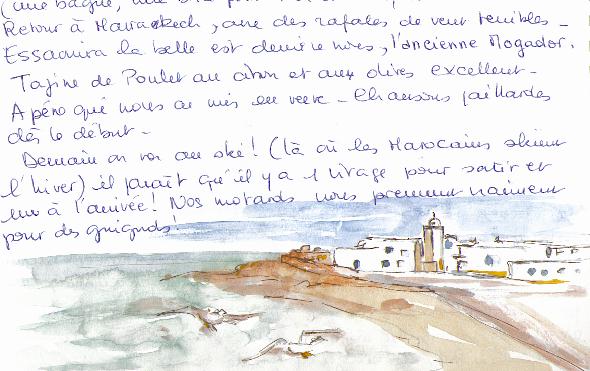 (une bague, une
Retour à Marrakech, avec des rafales de vent terribles -
Essaouira la belle est derrière nous, l'ancienne Mogador.
Tajine de Poulet au citron et aux olives excellent -
Apéro qui nous a mis en verve - Chansons paillardes
dès le début -
Demain on va au ski! (là où les Marocains skient
l'hiver) il paraît qu'il y a 1 virage pour sortir et
à l'arrivée! Nos motards nous prennent vraiment
pour des guignols!